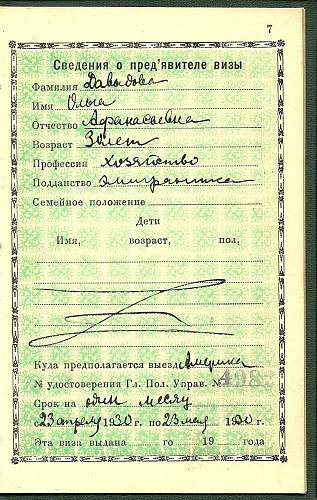 7
Сведения о пред'явителе визы
Фамилия Давыдова
Имя Ольга
Отчество Афанасьевна
Возраст 30 лет
Профессия хозяйство
Подданство эмигрантка
Семейное положение
Дети
Имя, возраст, пол,
Куда предполагается выезд Америка
№ удостоверения Гл. Пол. Управ. №
Срок на один месяц
с 23 апреля 1930 г. по 23 мая 1930 г.
Эта виза выдана го 19 года